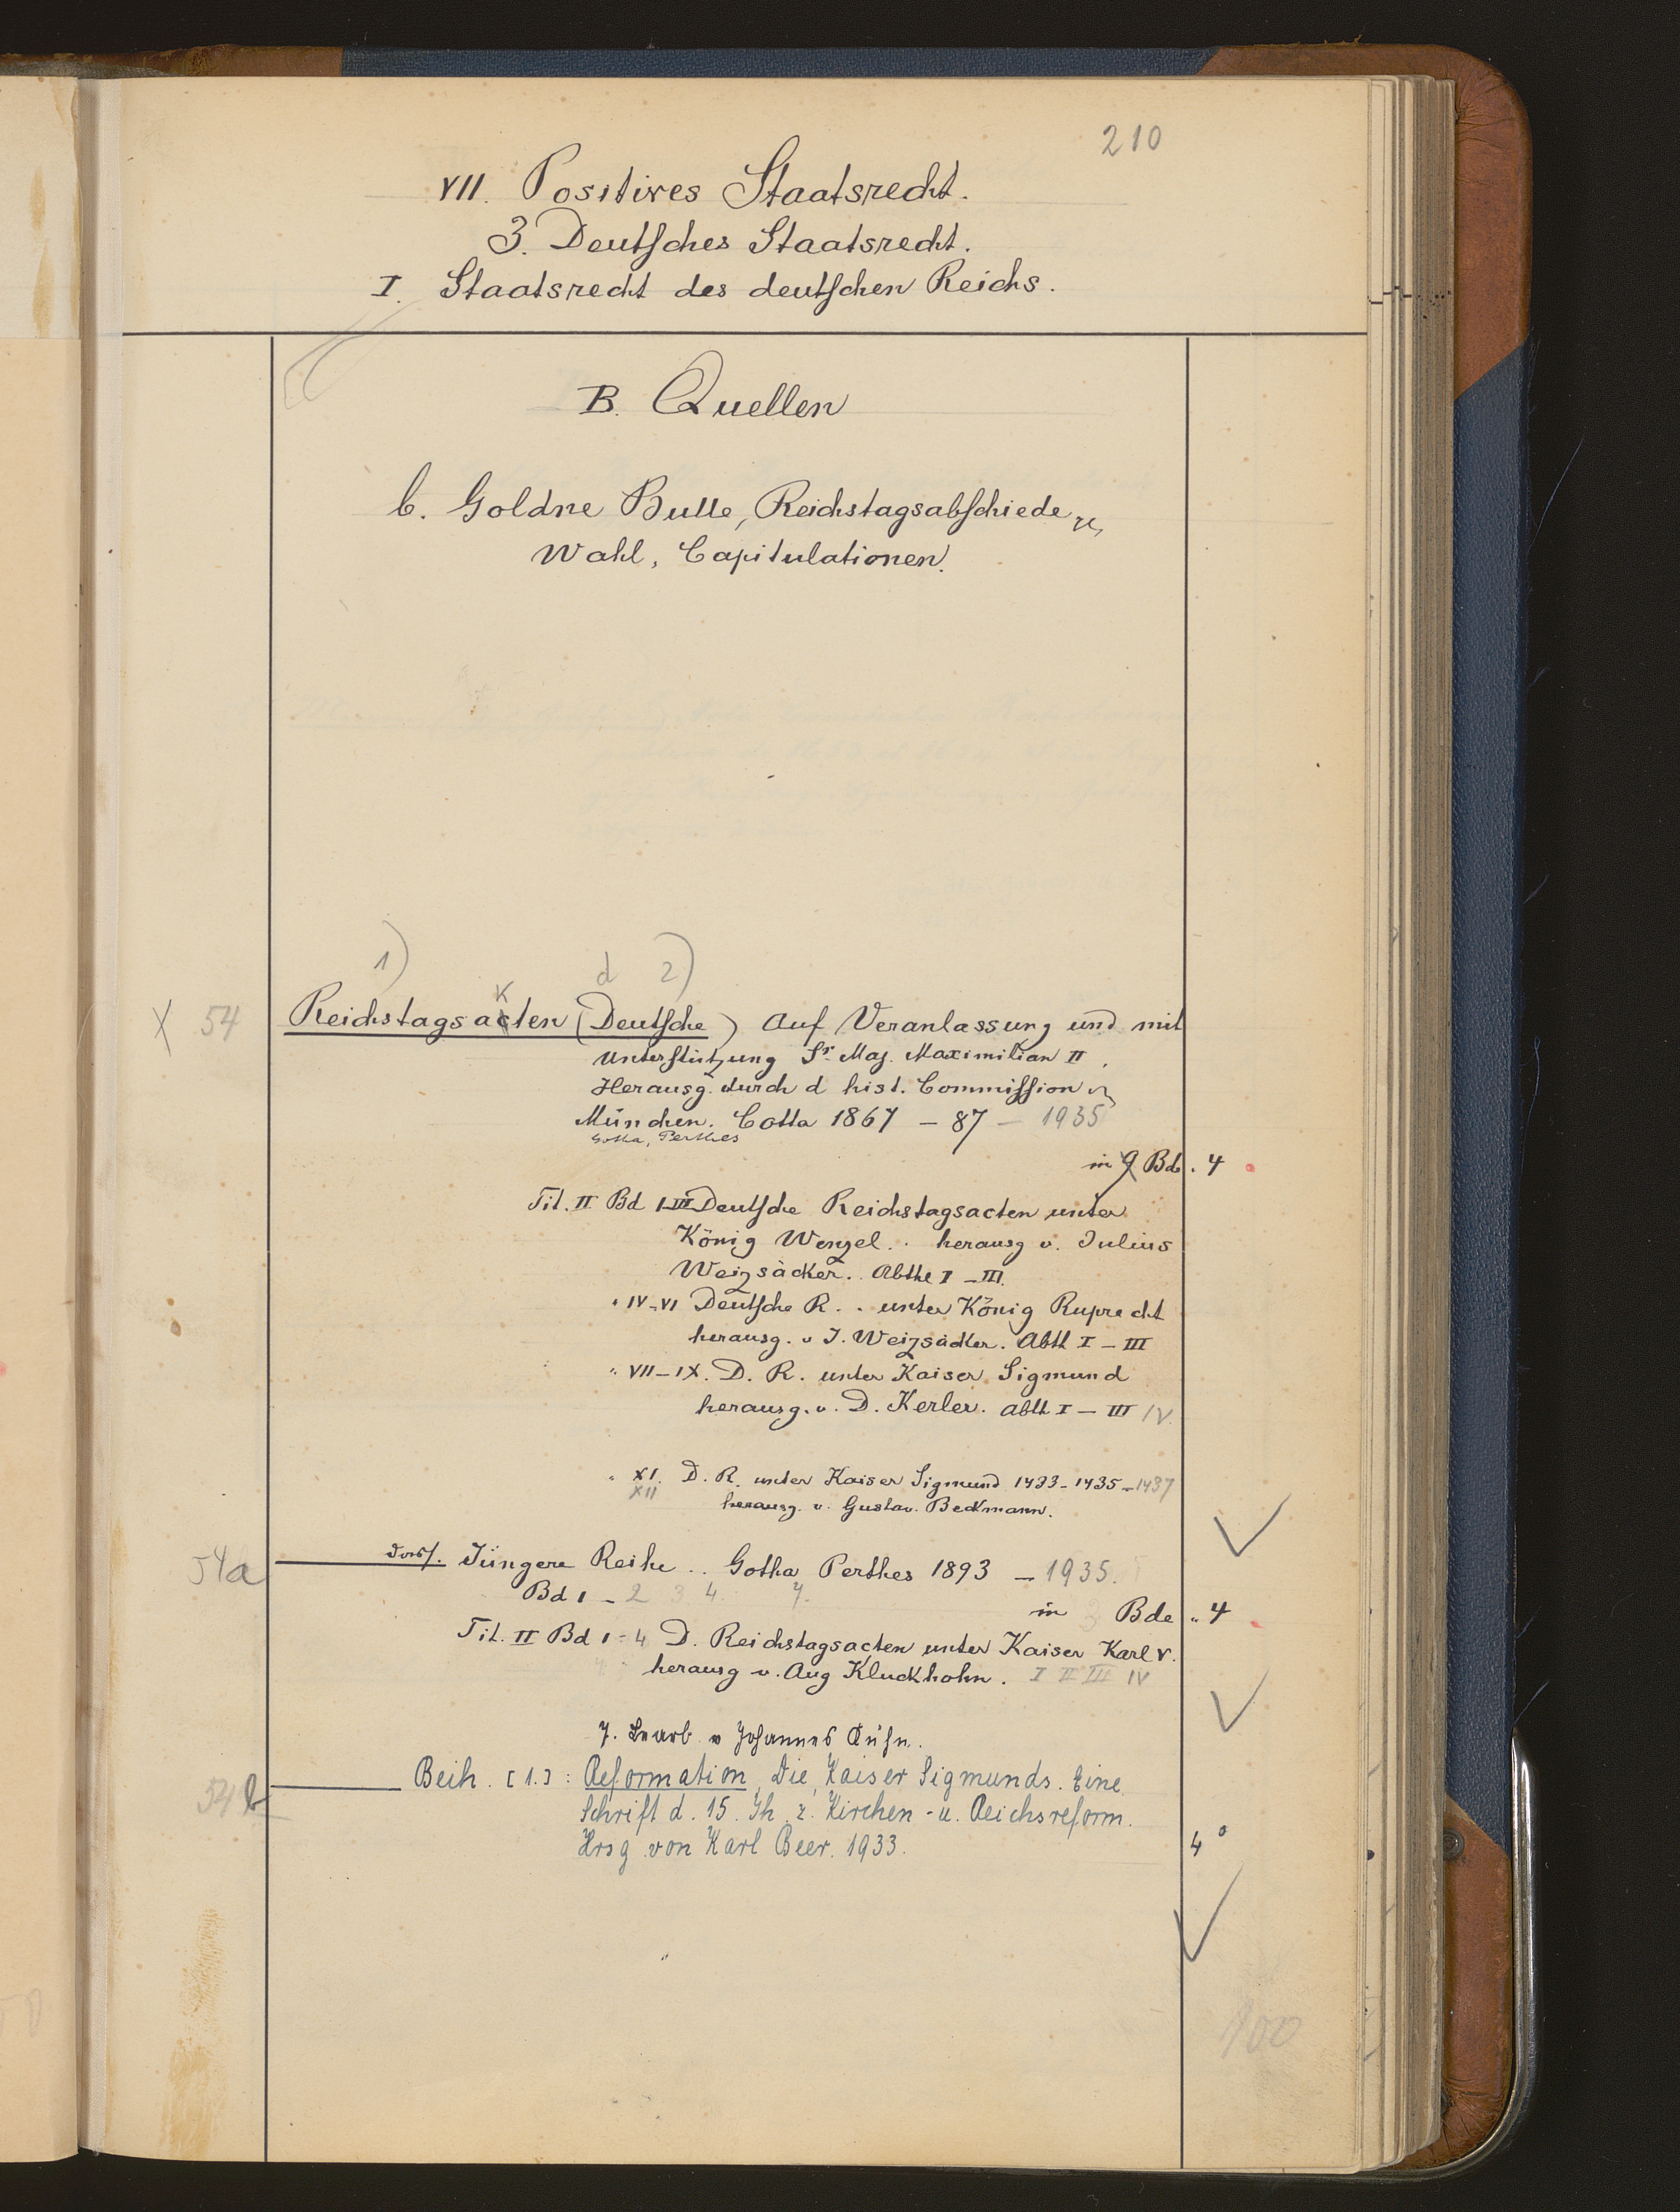 210
VII. Positives Staatsrecht.
3. Deutsches Staatsrecht.
I. Staatsrecht des deutschen Reichs.
B. Quellen
b. Goldne Bulle, Reichstagsabschiede
Wahl, Capitulationen.
1) d 2)
X 54 Reichstagsacten (Deutsche) Auf Veranlassung und mit
Unterstützung Sr. Maj. Maximilian II.
Herausg. durch d hist. Commission
München. Cotta 1867 – 87 – 1935
Gotha, Perthes
in 9 Bd. 4
Tit. II Bd I–III Deutsche Reichstagsacten unter
König Wenzel.. herausg v. Julius
Weizsäcker.. Abthe I – III.
" IV–VI Deutsche R.. unter König Ruprecht
herausg. v J. Weizsäcker. Abth I – III
" VII–IX. D. R. unter Kaiser Sigmund
herausg. v. D. Kerler. Abth I – III IV.
" XI. D. R. unter Kaiser Sigmund 1433–1435–1437
XII herausg. v. Gustav. Beckmann.
54a ——— Jüngere Reihe.. Gotha Perthes 1893 – 1935.
Bd 1 – 2 3 4. 7.
in 3 Bde " 4
Tit. II Bd 1–4 D. Reichstagsacten unter Kaiser Karl V.
herausg v. Aug Kluckhohn. I II III IV
7. Bearb. v Johannes Kühn.
54b ——— Beih. [1.]: Reformation, Die, Kaiser Sigmunds. Eine
Schrift d. 15. Jh. z. Kirchen- u. Reichsreform.
Hrsg von Karl Beer. 1933. 4°
100